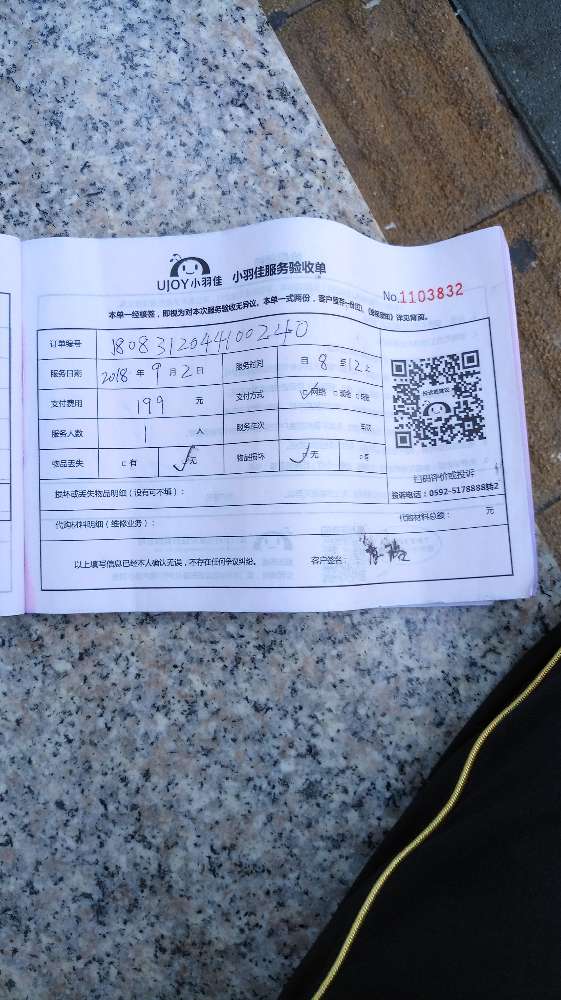 UJOY小羽佳 小羽佳服务验收单
No.1103832
本单一经核签，即视为对本次服务验收无异议。本单一式两份，客户留存一份，详见背面。
订单编号 1808312044100240
服务日期 2018 年 9 月 2 日 服务时间 自 8 至 12 止
支付费用 199 元 支付方式 ☑网络 □现金
服务人数 1 人 服务车次 车次
物品丢失 □有 ☑无 物品损坏 ☑无 □有
扫码评价或投诉
投诉电话：0592-5178888转2
损坏或丢失物品明细（没有可不填）：
代购材料明细（维修业务）： 代购材料总额： 元
以上填写信息已经本人确认无误，不存在任何争议纠纷。 客户签名：